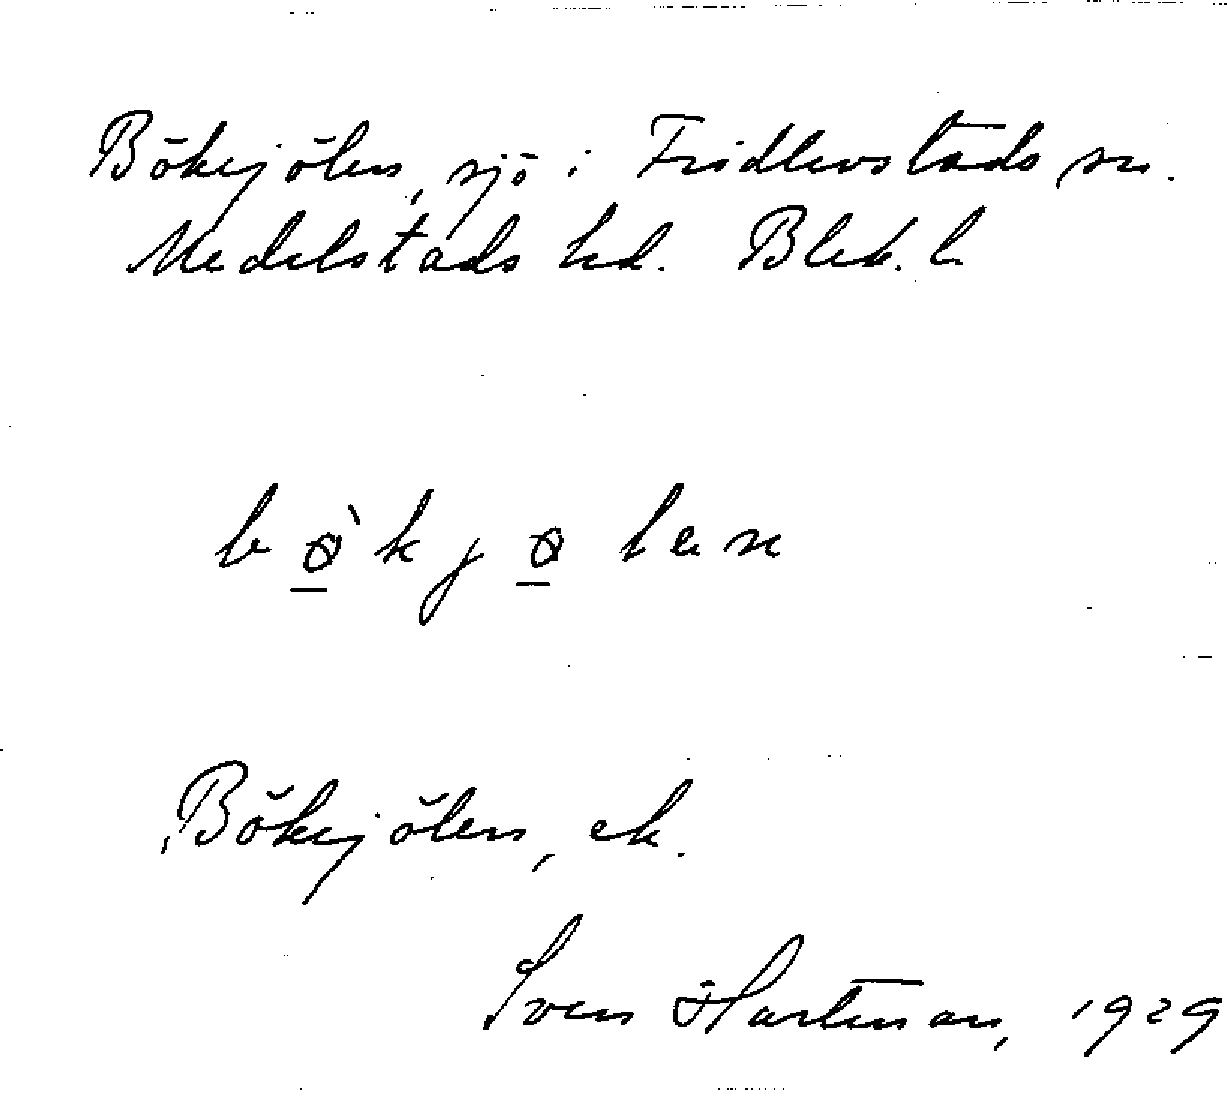 Bökejölen, sjö i Fridlevstads sn.
Medelstads hd. Blek. l.
bø̱̀kjø̱len
Bökejölen, ek.
Sven Hartman, 1929